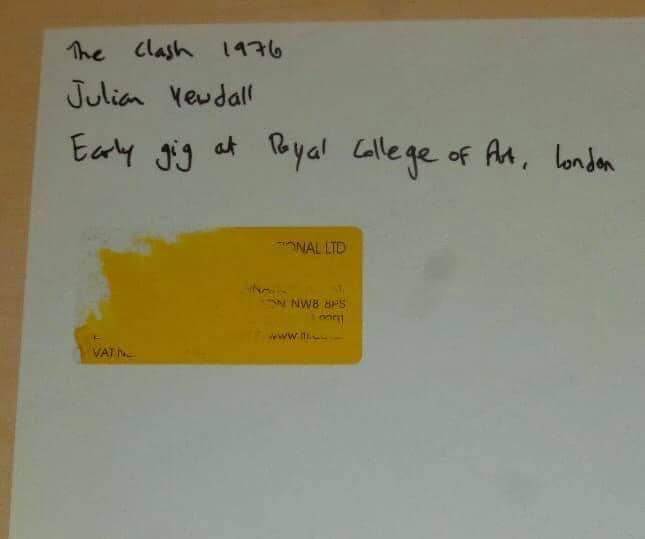 The Clash 1976
Julian Yewdall
Early gig at Royal College of Art, London
LTD
NW8 8PS
VAT